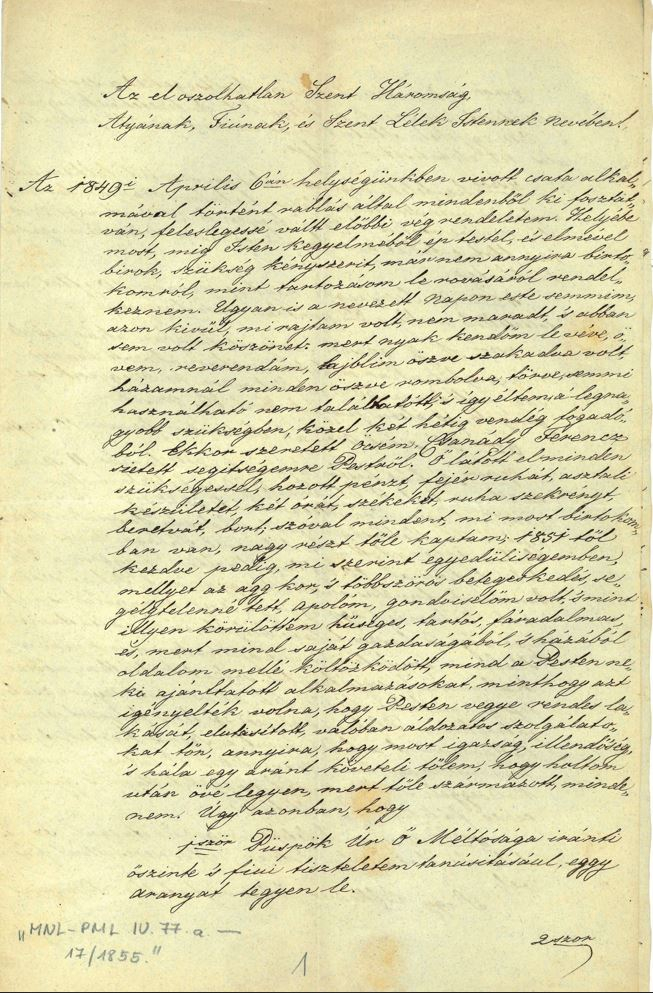 Az el oszolhatlan Szent Háromság,
Atyának, Fiúnak, és Szent Lélek Istennek nevében!
Az 1849i Aprilis 6án helységünkben vivott csata alkal-
mával történt rablás által mindenből ki fosztat-
ván, feleslegessé váltt előbbi vég rendeletem. Helyébe
most, mig Isten kegyelméből ép testel, és elmével
birok, szükség kényszerit, már nem annyira birto-
komról, mint tartozásom le rovásáról rendel-
keznem. Ugyan is a nevezett napon este semmim,
azon kivül, mi rajtam volt, nem maradt, s abban
sem volt köszönet: mert nyak kendőm le véve, ö-
vem, reverendám, lajblim öszve szakadva volt,
házamnál minden öszve rombolva, törve, semmi
használható nem találtatott, s igy éltem a legna-
gyobb szükségben, közel két hétig vendég fogadó-
ból. Ekkor szeretett Öcsém, Csanády Ferencz
sietett segitségemre Pestről. Ő látott el minden
szükségessel, hozott pénzt, fejér ruhát, asztali
készületet, két órát, székeket, ruha szekrényt,
beretvát, bort; szóval mindent, mi most birtokom-
ban van, nagy részt tőle kaptam; 1851 től
kezdve pedig, mi szerint egyedüliségemben,
mellyet az agg kor, s többszörös betegeskedés, se-
gélytelenné tett, ápolóm, gondviselőm volt, s mint
illyen körülöttem hűséges, tartós, fáradalmas,
és, mert mind saját gazdaságából, s házából
oldalom mellé költözködött, mind a Pesten ne-
ki ajánltatott alkalmazásokat, minthogy azt
igényelték volna, hogy Pesten vegye rendes la-
kását, elutasitott, valóban áldozatos szolgálato-
kat tőn, annyira, hogy most igazság, illendőség,
s hála egy aránt követeli tőlem, hogy holtom
után övé legyen, mert tőle származott, minde-
nem. Úgy azonban, hogy
1ször Püspök Úr Ő Méltósága iránti
őszinte s fiui tiszteletem tanúsitásáúl, eggy
aranyat tegyen le.
2szor
"MNL-PML IV. 77. a. —
17/1855."
1